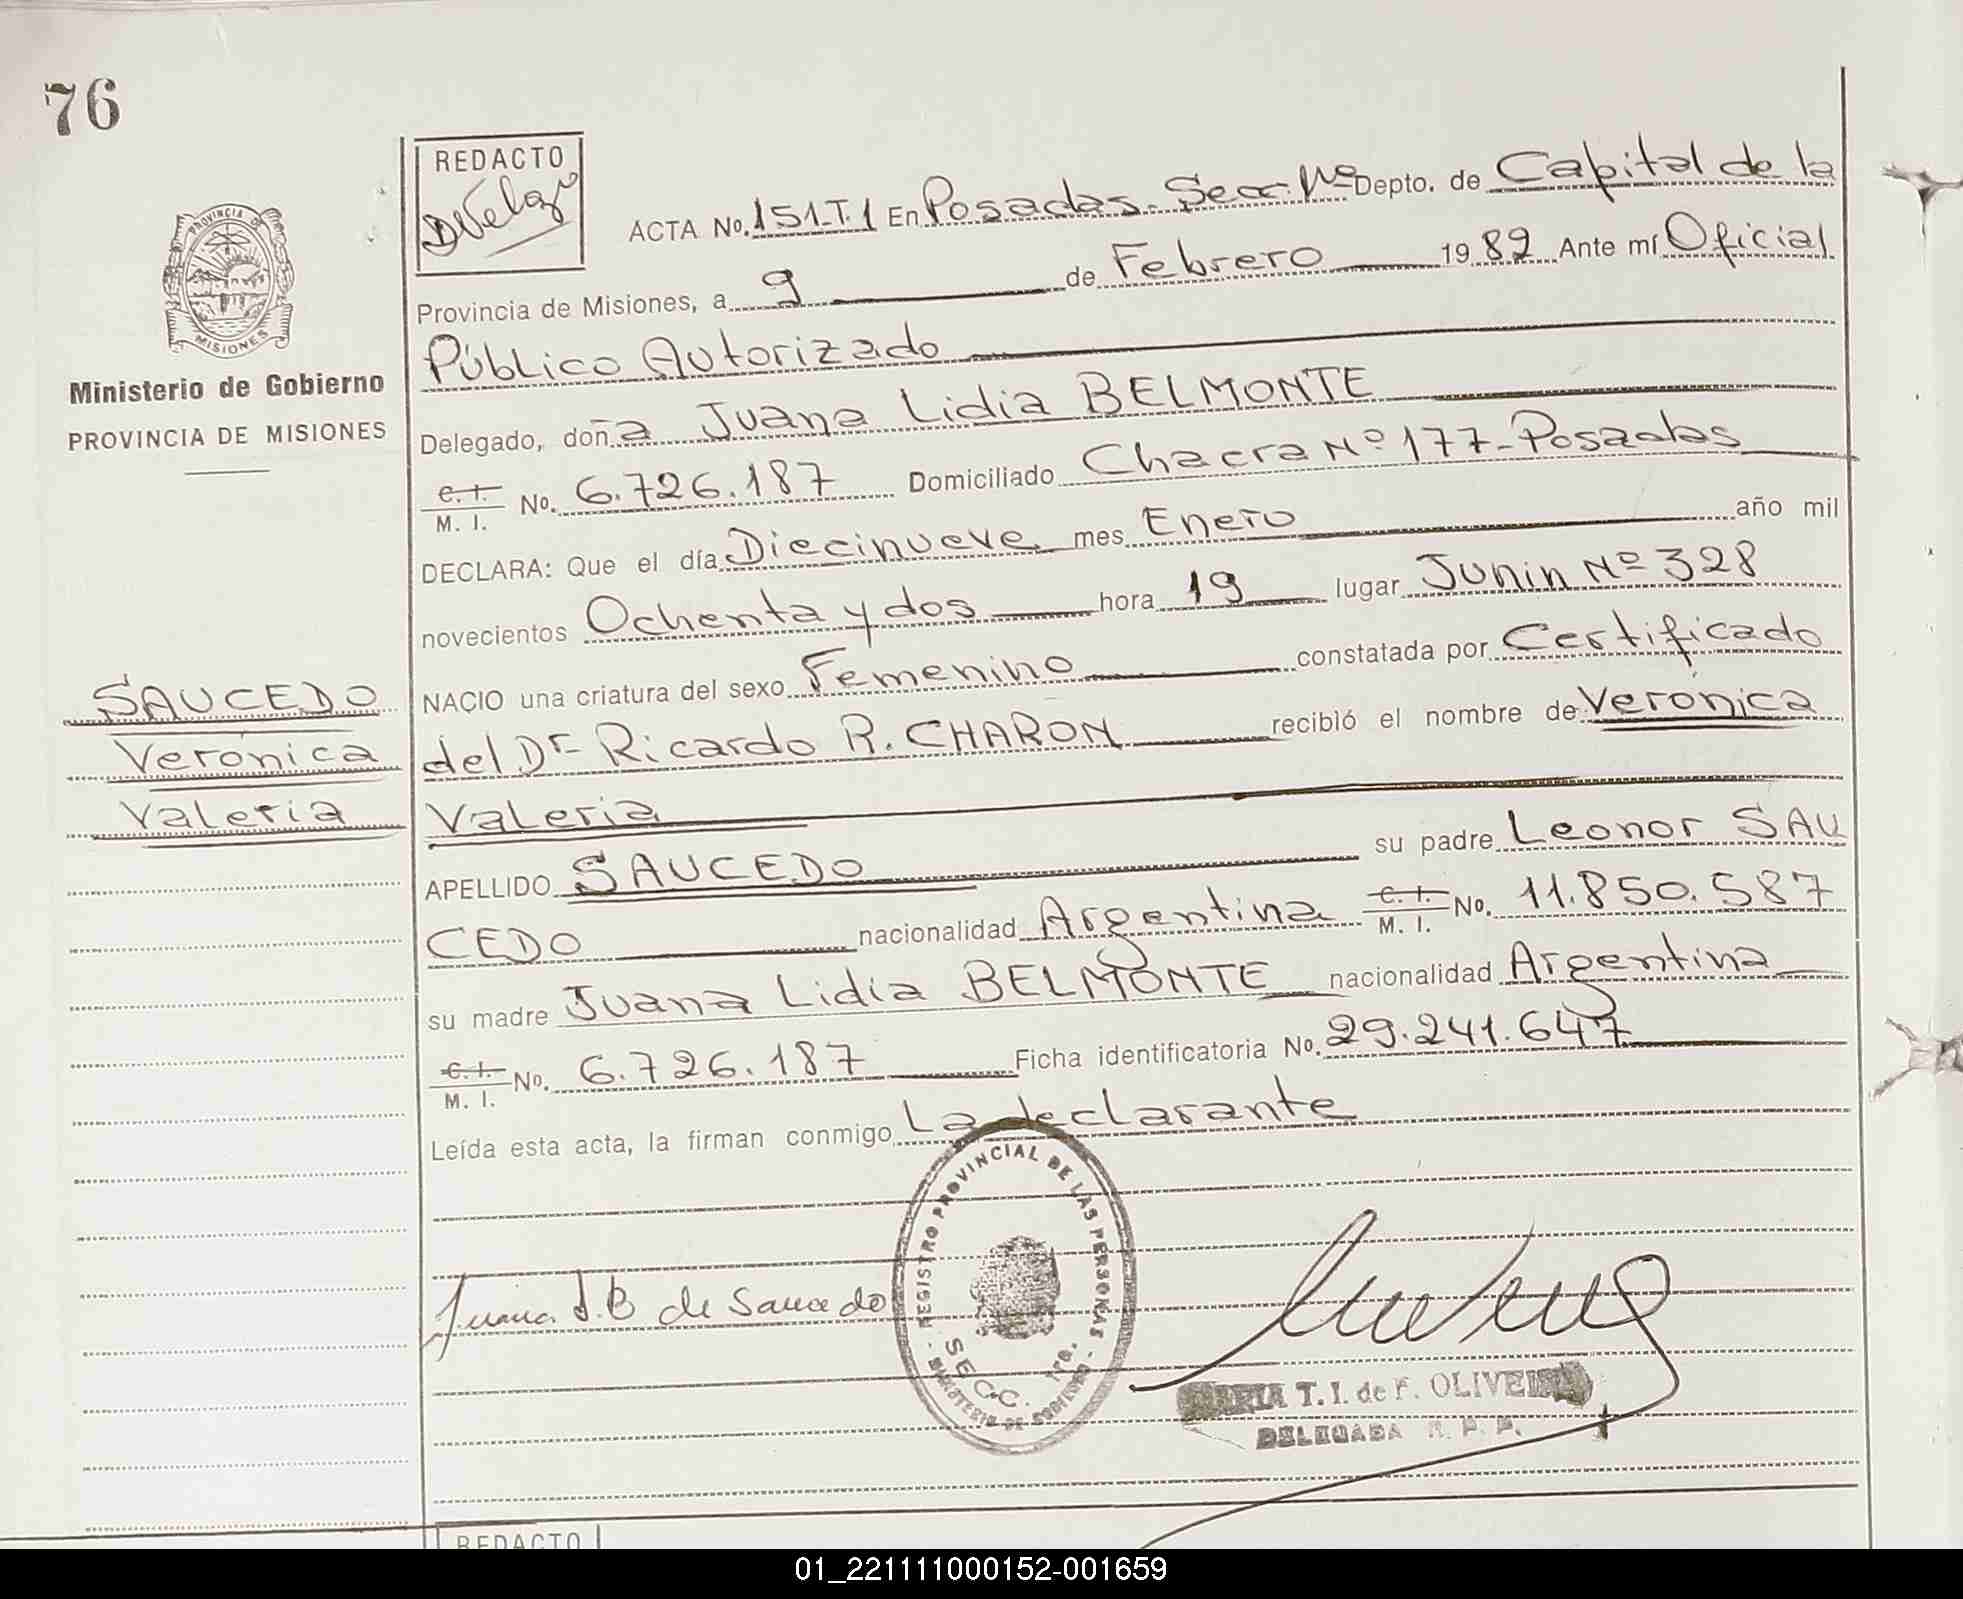 76
REDACTO
ACTA No. 151-T.1 En Posadas. Secc. Nº Depto. de Capital de la
Provincia de Misiones, a 9 de Febrero 1982 Ante mí Oficial
Público Autorizado
Delegado, doña Juana Lidia BELMONTE
C.I. M. I. No. 6.726.187 Domiciliado Chacra Nº 177-Posadas
DECLARA: Que el día Diecinueve mes Enero año mil
novecientos Ochenta y dos hora 19 lugar Junin Nº 328
NACIO una criatura del sexo Femenino constatada por Certificado
del Dr Ricardo R. CHARON recibió el nombre de Verónica
Valeria
APELLIDO SAUCEDO su padre Leonor SAU
CEDO nacionalidad Argentina C.I. M. I. No. 11.850.587
su madre Juana Lidia BELMONTE nacionalidad Argentina
C.I. M. I. No. 6.726.187 Ficha identificatoria No. 29.241.647
Leída esta acta, la firman conmigo La declarante
PROVINCIA DE
MISIONES
Ministerio de Gobierno
PROVINCIA DE MISIONES
SAUCEDO
Verónica
Valeria
Juana L.B de Saucedo
REGISTRO PROVINCIAL DE LAS PERSONAS
SECC. 1ra.
MINISTERIO DE GOBIERNO
MARIA T. I. de F. OLIVEIRA
DELEGADA R. P. P.
REDACTO
01_221111000152-001659